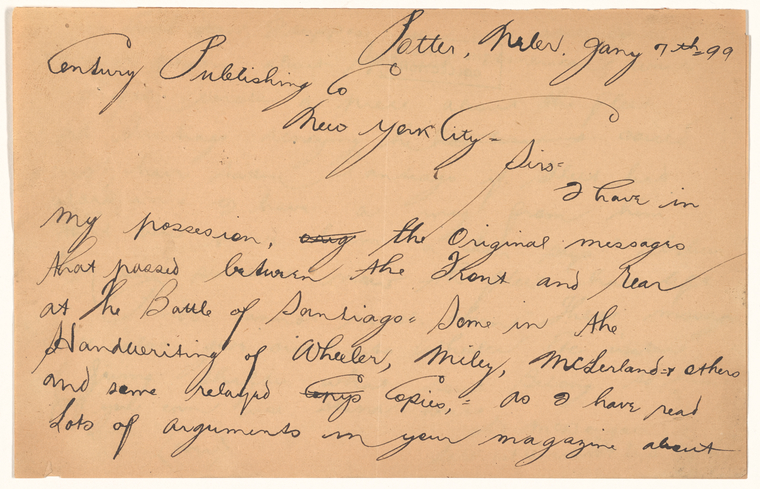 Potter, Nebr. Jany 7th = 99
Century Publishing Co
New York City =
Sirs =
I have in
my possesion, orig the Original messages
that passed between the Front and Rear
at the Battle of Santiago = Some in the
Handwriting of Wheeler, Miley, McClernand = & others
and some relayed Copys Copies, = as I have read
Lots of arguments in your magazine about